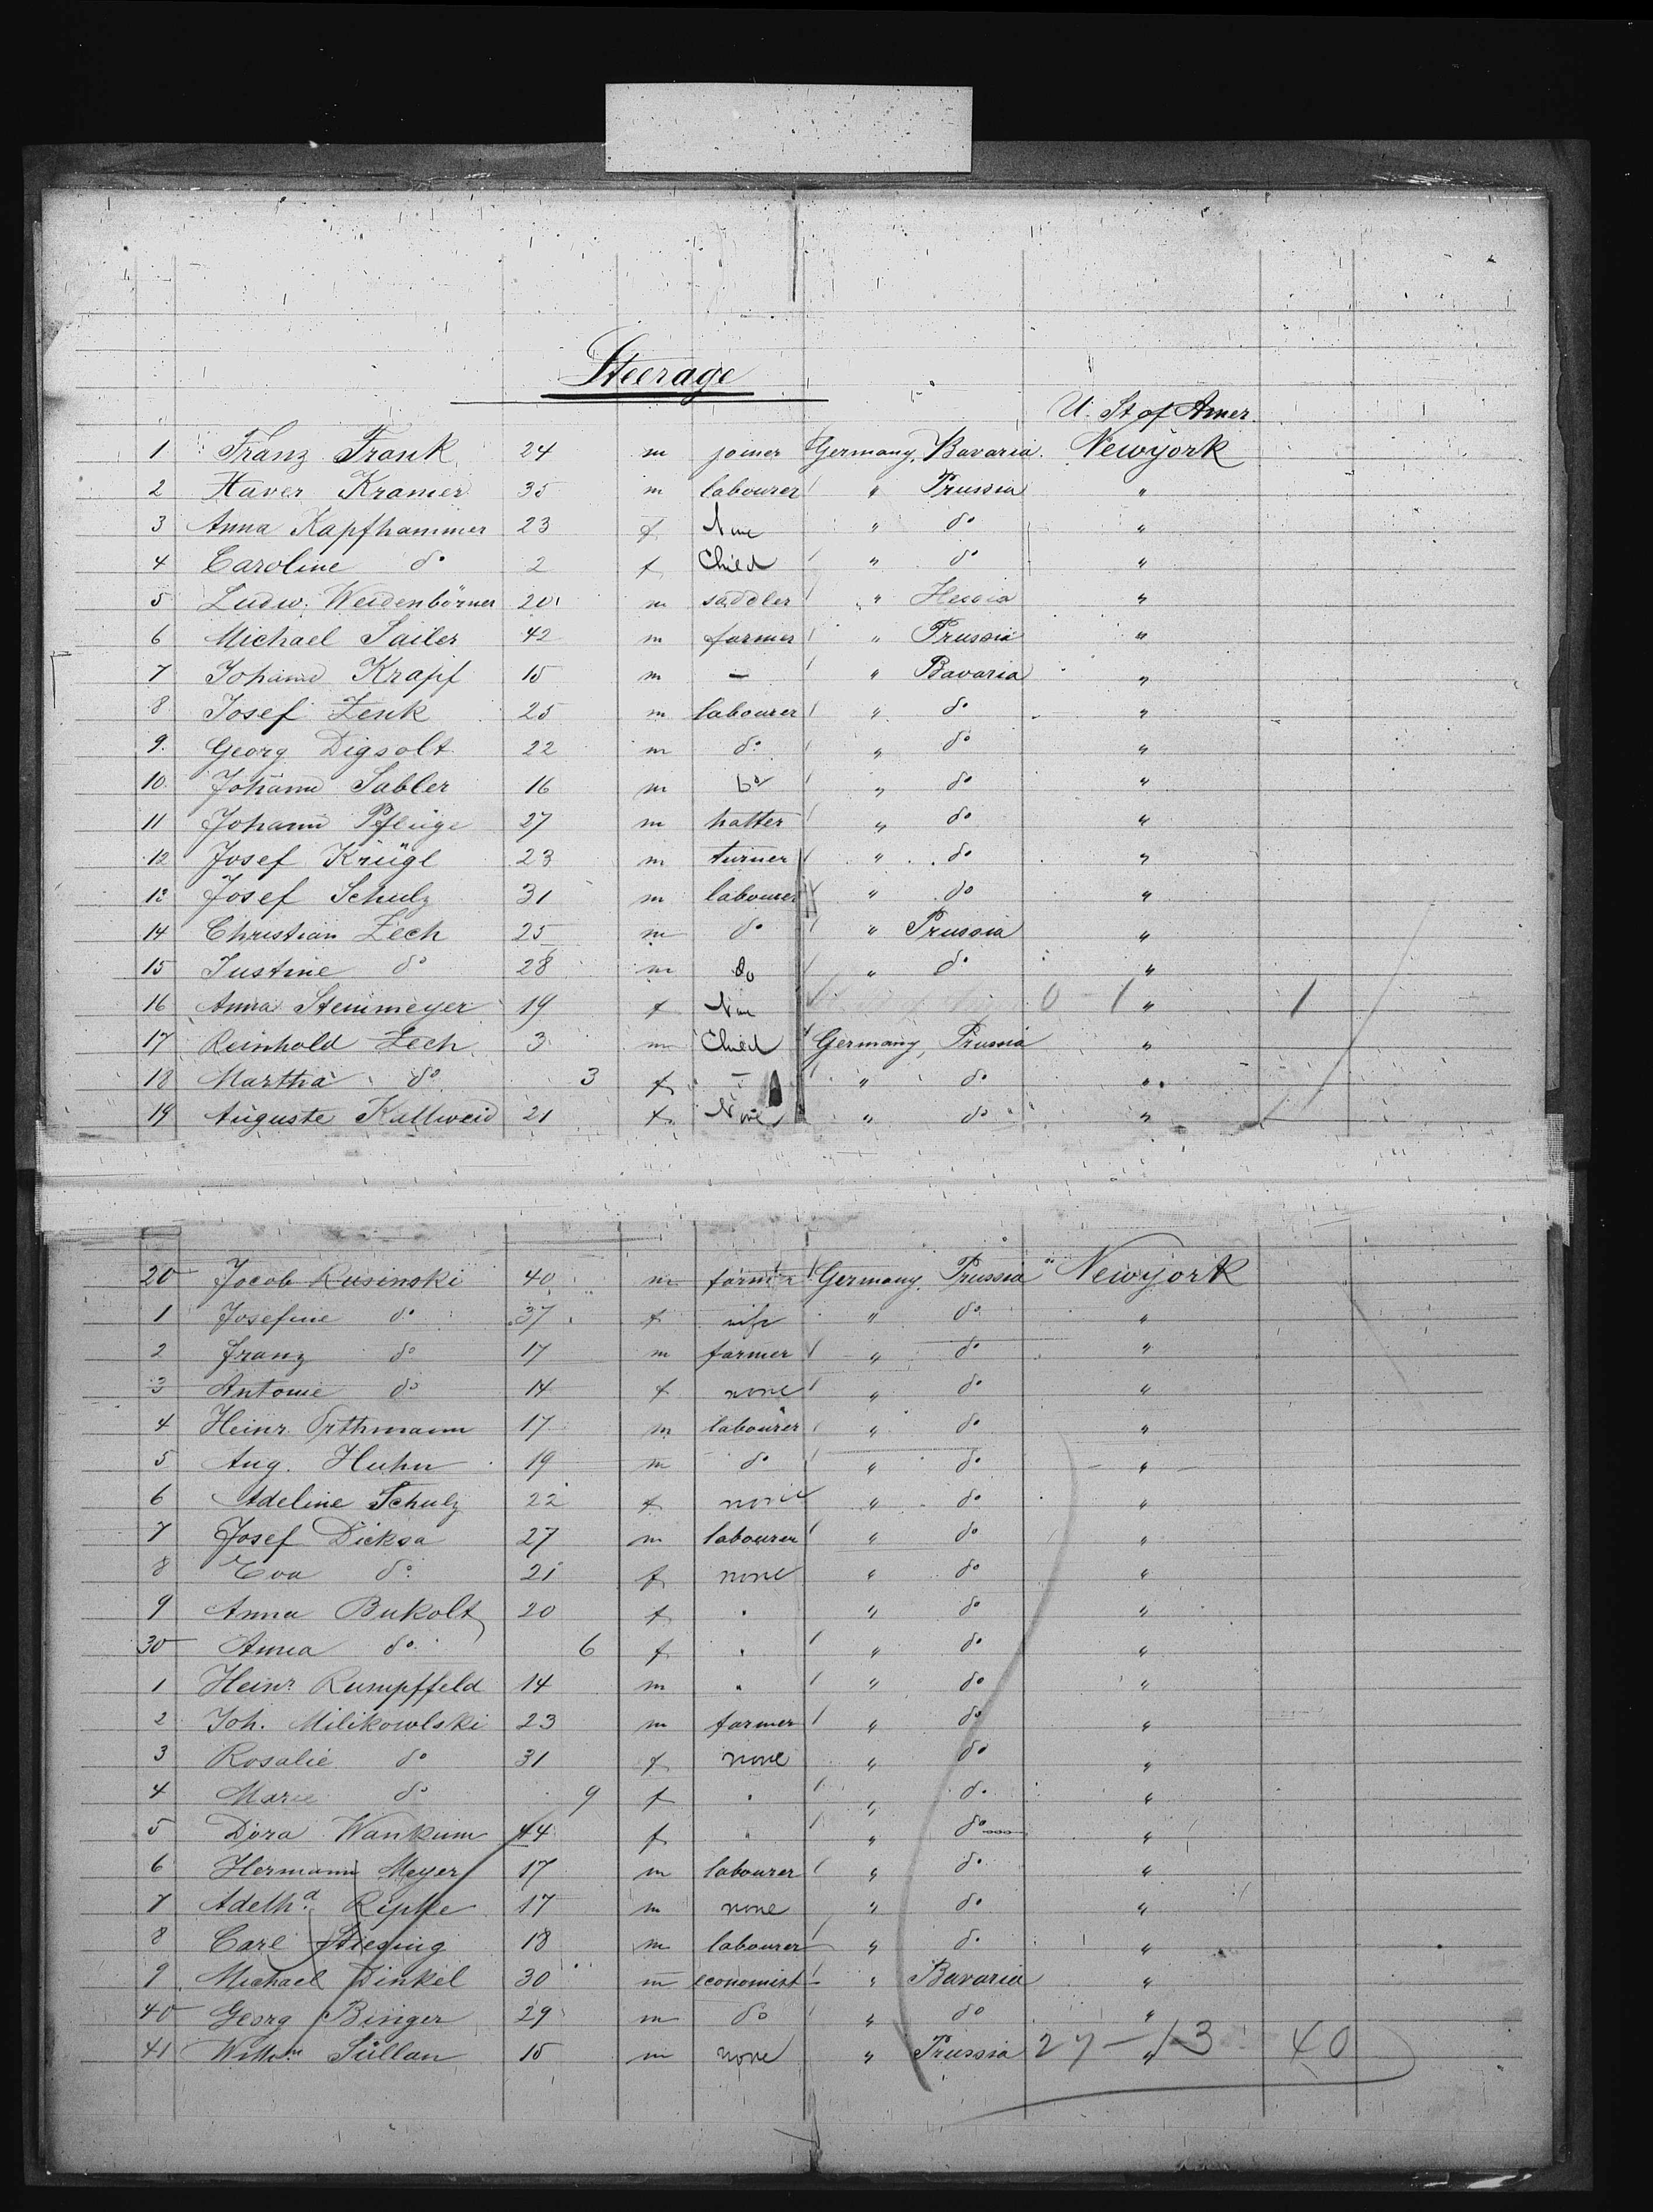 Steerage
U. St of Amer.
1 Franz Frank 24 m joiner Germany, Bavaria. Newyork
2 Xaver Kramer 35 m labourer " Prussia "
3 Anna Kapfhammer 23 f None " do "
4 Caroline do 2 f Child " do "
5 Ludw. Weidenbörner 20 m saddler " Hessia "
6 Michael Sailer 42 m farmer " Prussia "
7 Johann Krapf 15 m — " Bavaria "
8 Josef Zenk 25 m labourer " do "
9. Georg Digsolt 22 m do " do "
10. Johann Sabler 16 m do " do "
11 Johann Pfluge 27 m hatter " do "
12 Josef Krügl 23 m turner " do "
13 Josef Schulz 31 m labourer " do "
14 Christian Zech 25 m do " Prussia "
15 Justine do 28 m do " do "
16 Anna Steinmeyer 19 f None 0 - 1 " 1
17 Reinhold Zech 3 m Child Germany, Prussia "
18 Martha do 3 f — " do "
19 Auguste Kallweid 21 f None " do "
20 Jacob Rusinski 40 m farmer Germany. Prussia Newyork
1 Josefine do 37 f wife " do "
2 Franz do 17 m farmer " do "
3 Antonie do 14 f none " do "
4 Heinr. Orthmann 17 m labourer " do "
5 Aug. Huhn 19 m do " do "
6 Adeline Schulz 22 f none " do "
7 Josef Dicksa 27 m labourer " do "
8 Eva do 21 f none " do "
9 Anna Bukolt 20 f " " do "
30 Anna do 6 f " " do "
1 Heinr. Rumpffeld 14 m " " do "
2 Joh. Milikowlski 23 m farmer " do "
3 Rosalie do 31 f none " do "
4 Marie do 9 f " " do "
5 Dora Wankum 44 f " " do "
6 Hermann Meyer 17 m labourer " do "
7 Adelhd. Ripke 17 m none " do "
8 Carl 18 m labourer " do "
9 Michael Dinkel 30 m economist " Bavaria "
40 Georg Binger 29 m do " do "
41 Willm Süllan 15 m none " Prussia 27 - 13 " 40